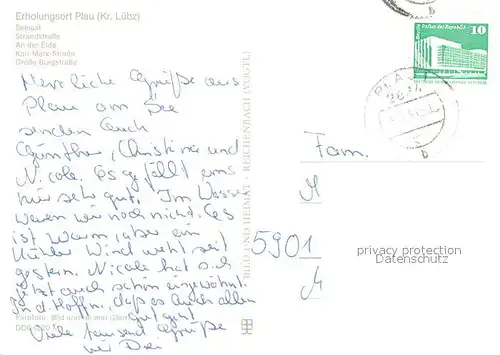 Erholungsort Plau (Kr. Lübz)
Seeigak
Strandstraße
An der Elde
Karl-Marx-Straße
Große Burgstraße
Herzliche Grüße aus
Plau am See
senden Euch
Günther, Christina und
Nicole. Es gefällt uns
hier sehr gut. Im Wasser
waren wir noch nicht. Es
ist warm, aber ein
kühler Wind weht seit
gestern. Nicole hat sich
jetzt auch schon eingewöhnt.
In d. Hoffn., daß es Euch allen
gut geht
Viele tausend Grüße
wir Drei
BILD UND HEIMAT · REICHENBACH (VOGTL)
Palast der Republik
10
PLAU
b
b
Fam.
M
5901
M
privacy protection
Datenschutz